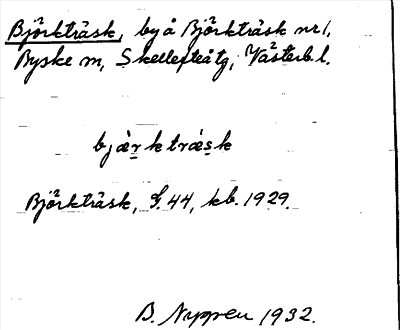 Björkträsk, by å Björkträsk nr 1,
Byske sn, Skellefteå tg, Västerb. l.
bjärkträsk
Björkträsk, S. 44, kb. 1929.
B. Nyppen 1932.